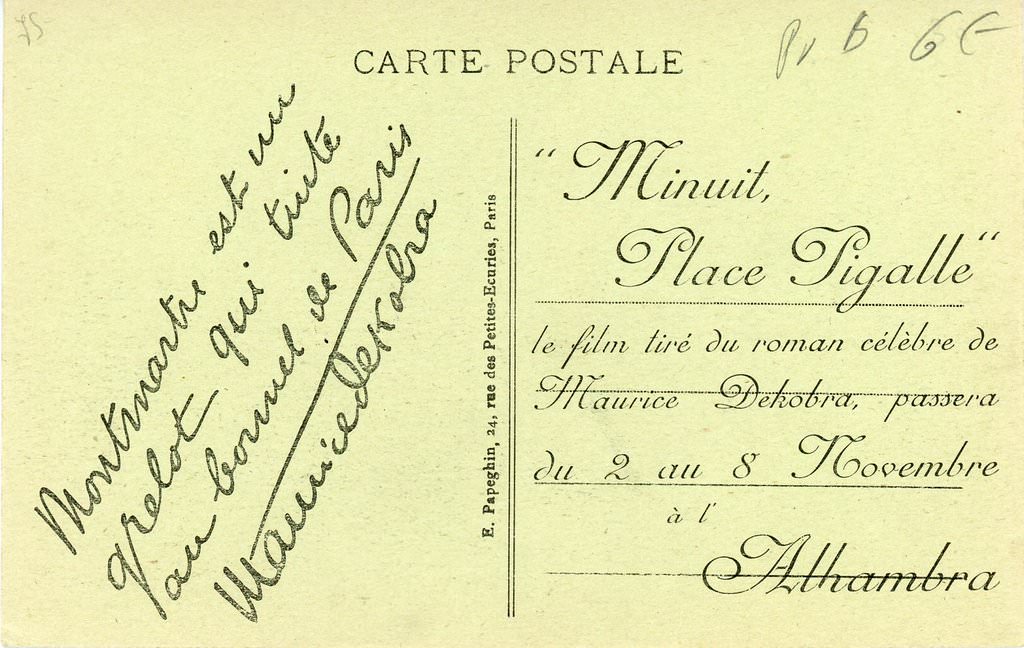 75
CARTE POSTALE
Montmartre est un
grelot qui tinte
au bonnet de Paris
Maurice Dekobra
E. Papeghin, 24, rue des Petites-Ecuries, Paris
“Minuit,
Place Pigalle“
le film tiré du roman célèbre de
Maurice Dekobra, passera
du 2 au 8 Novembre
à l'
Alhambra